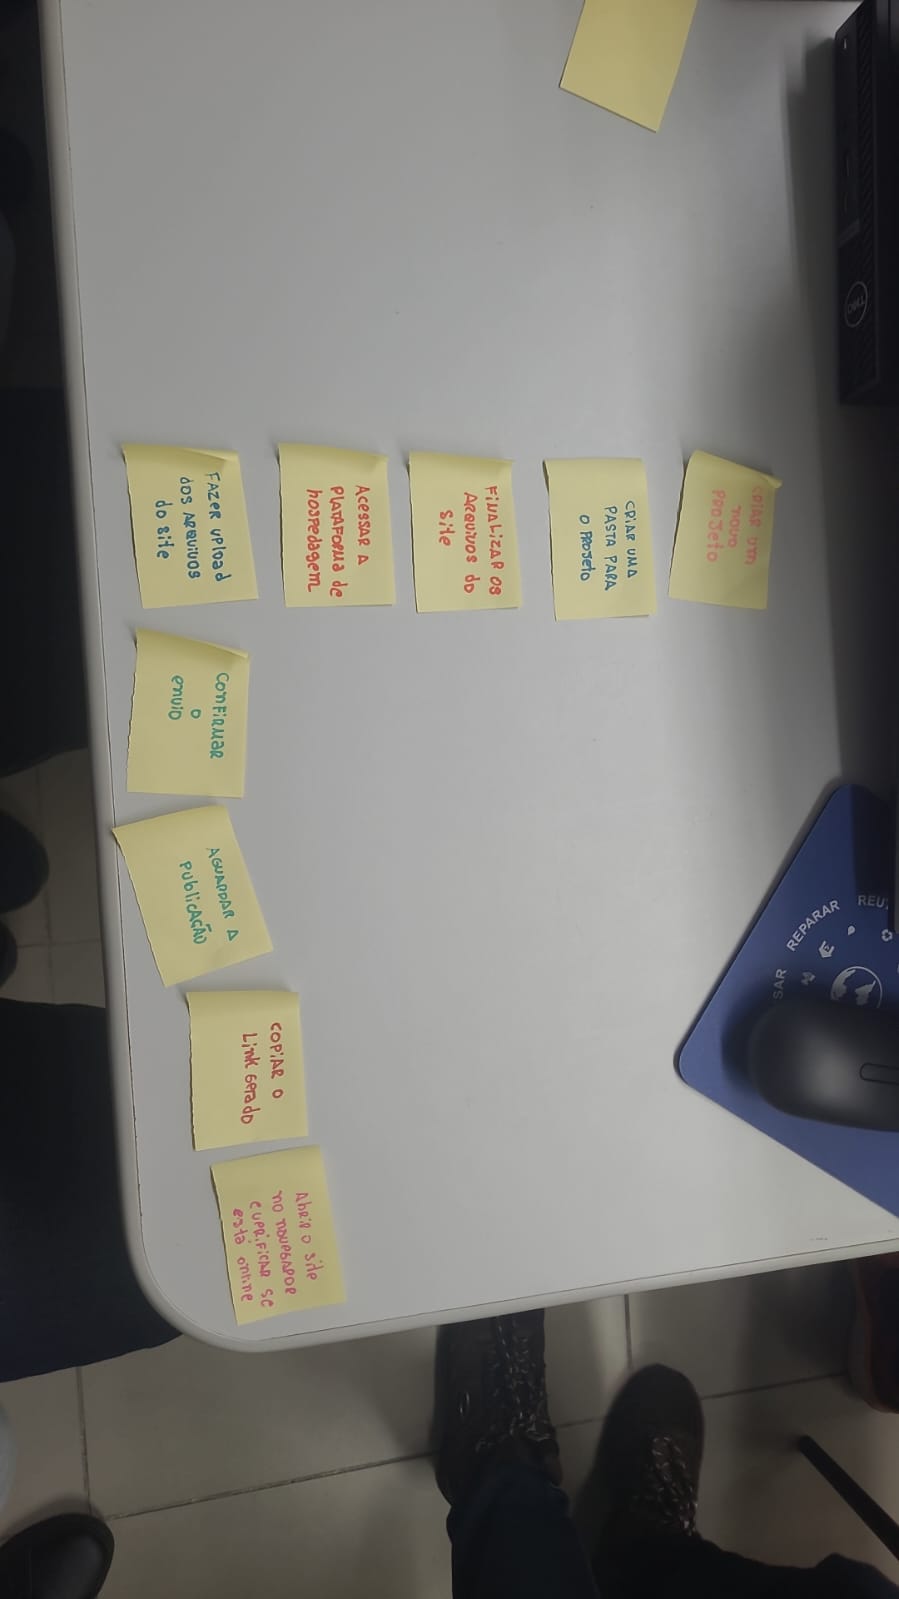 CRIAR UM
NOVO
PROJETO
CRIAR UMA
PASTA PARA
O PROJETO
FINALIZAR OS
ARQUIVOS do
Site
Acessar a
PLATAFORMA de
hospedagem
FAZER upload
dos ARQUIVOS
do site
CONFIRMAR
O
envio
AGUARDAR A
publicAÇÃO
COPIAR O
Link gerado
Abrir o site
no navegador
e verificar se
está online
DELL
SAR
REPARAR
REU